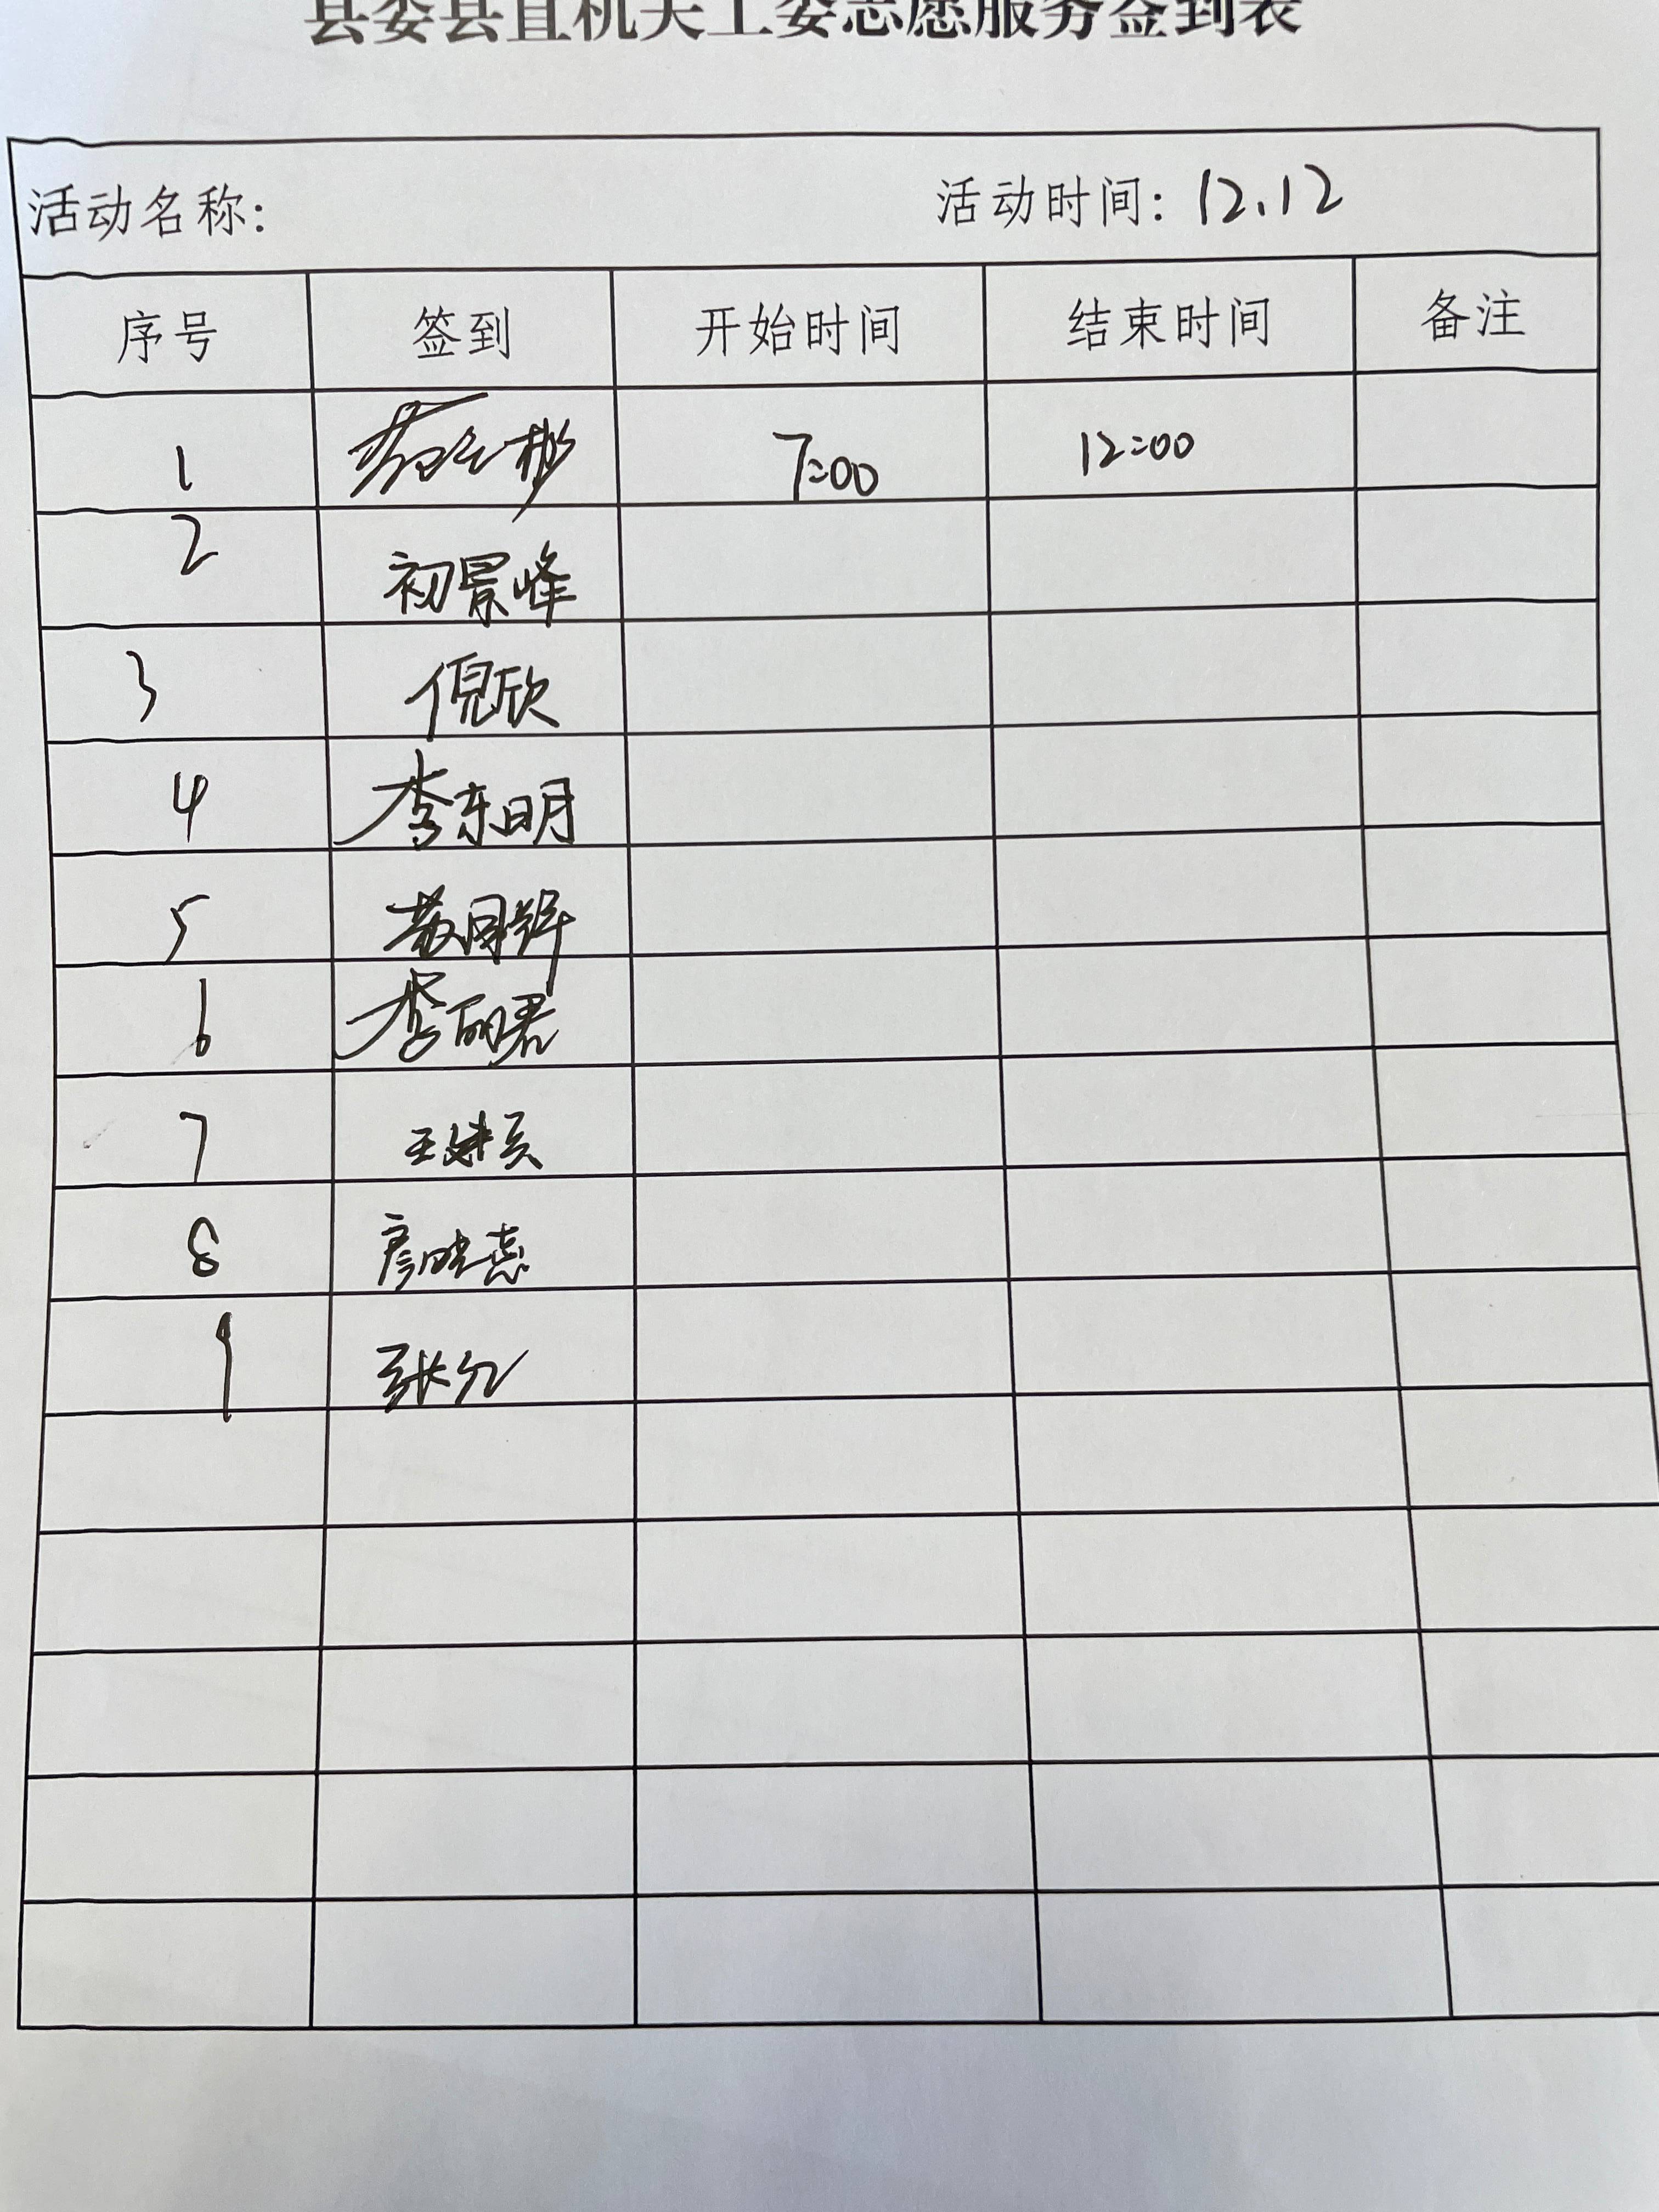 县委县直机关工委志愿服务签到表
活动名称: 活动时间: 12.12
序号 签到 开始时间 结束时间 备注
1 7:00 12:00
2 初景峰
3 倪欣
4 李东明
5
6 李丽君
7 王
8 廖晓燕
9 张